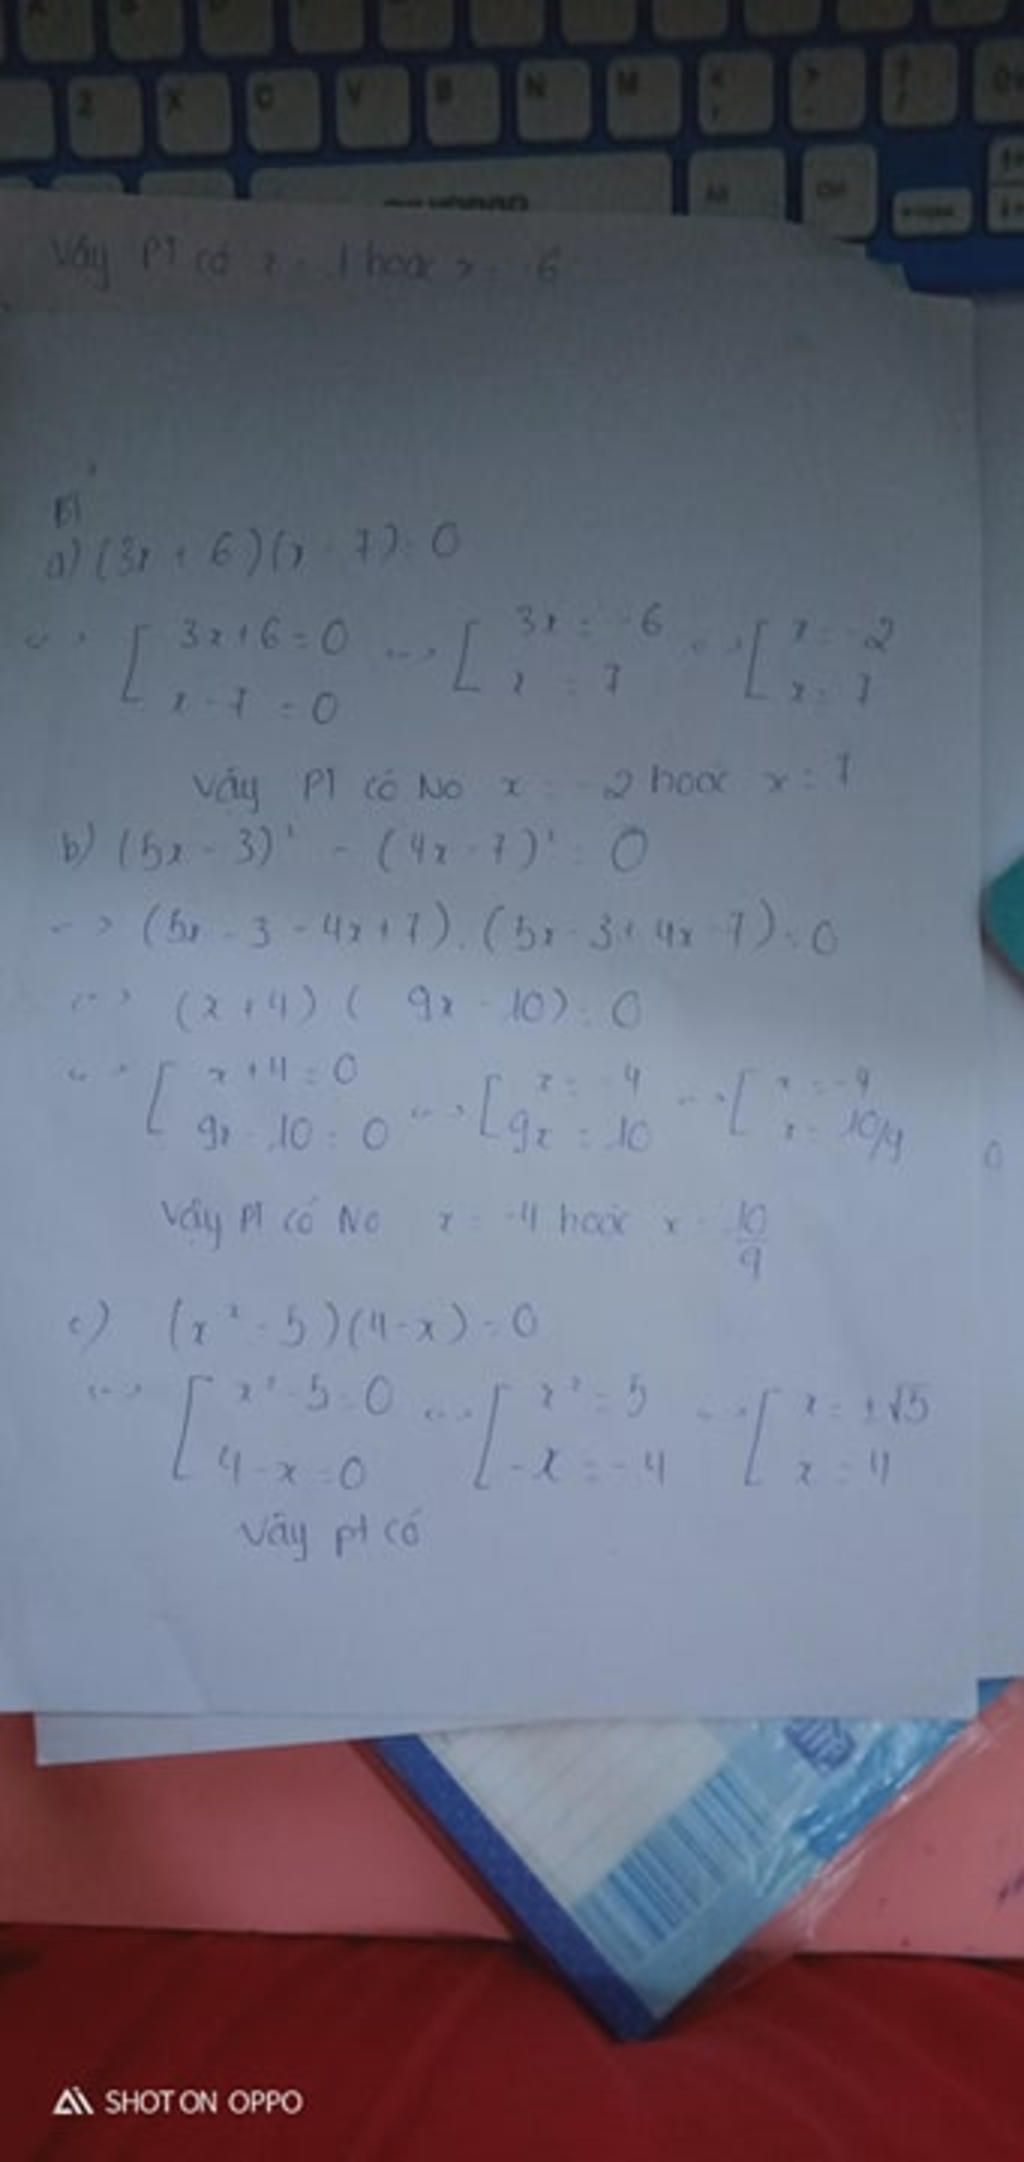 Z X C V B N M < , > . ? /
Alt Ctrl
Vậy PT có x = 1 hoặc x = -6
B1
a) (3x + 6)(x - 7) = 0
<=> [ 3x + 6 = 0 <=> [ 3x = -6 <=> [ x = -2
x - 7 = 0 x = 7 x = 7
Vậy PT có No x = -2 hoặc x = 7
b) (5x - 3)² - (4x - 7)² = 0
<=> (5x - 3 - 4x + 7).(5x - 3 + 4x - 7) = 0
<=> (x + 4)( 9x - 10) = 0
<=> [ x + 4 = 0 <=> [ x = -4 <=> [ x = -4
9x - 10 = 0 9x = 10 x = 10/9
Vậy PT có No x = -4 hoặc x = 10/9
c) (x² - 5)(4 - x) = 0
<=> [ x² - 5 = 0 <=> [ x² = 5 <=> [ x = ±√5
4 - x = 0 -x = -4 x = 4
Vậy pt có
SHOT ON OPPO